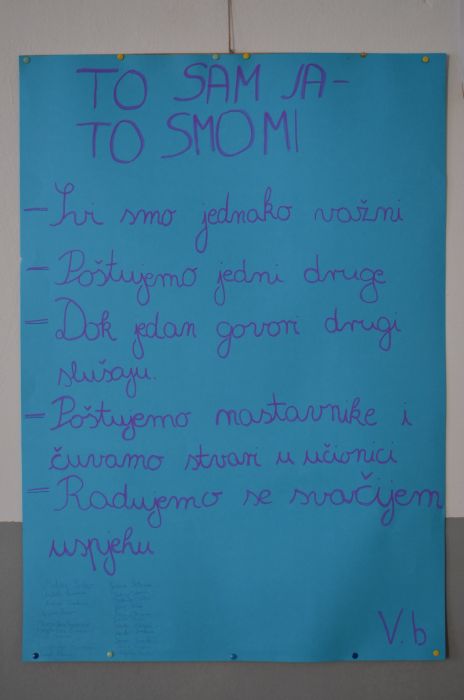 TO SAM JA-
TO SMO MI
- Svi smo jednako važni
- Poštujemo jedni druge
= Dok jedan govori drugi
slušaju.
= Poštujemo nastavnike i
čuvamo stvari u učionici
= Radujemo se svačijem
uspjehu
V.b